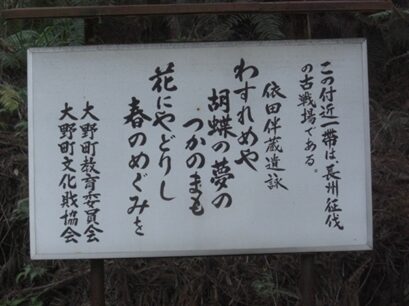 この付近一帯は、長州征伐
の古戦場である。
依田伴蔵遺詠
わすれめや
胡蝶の夢の
つかのまも
花にやどりし
春のめぐみを
大野町教育委員会
大野町文化財協会